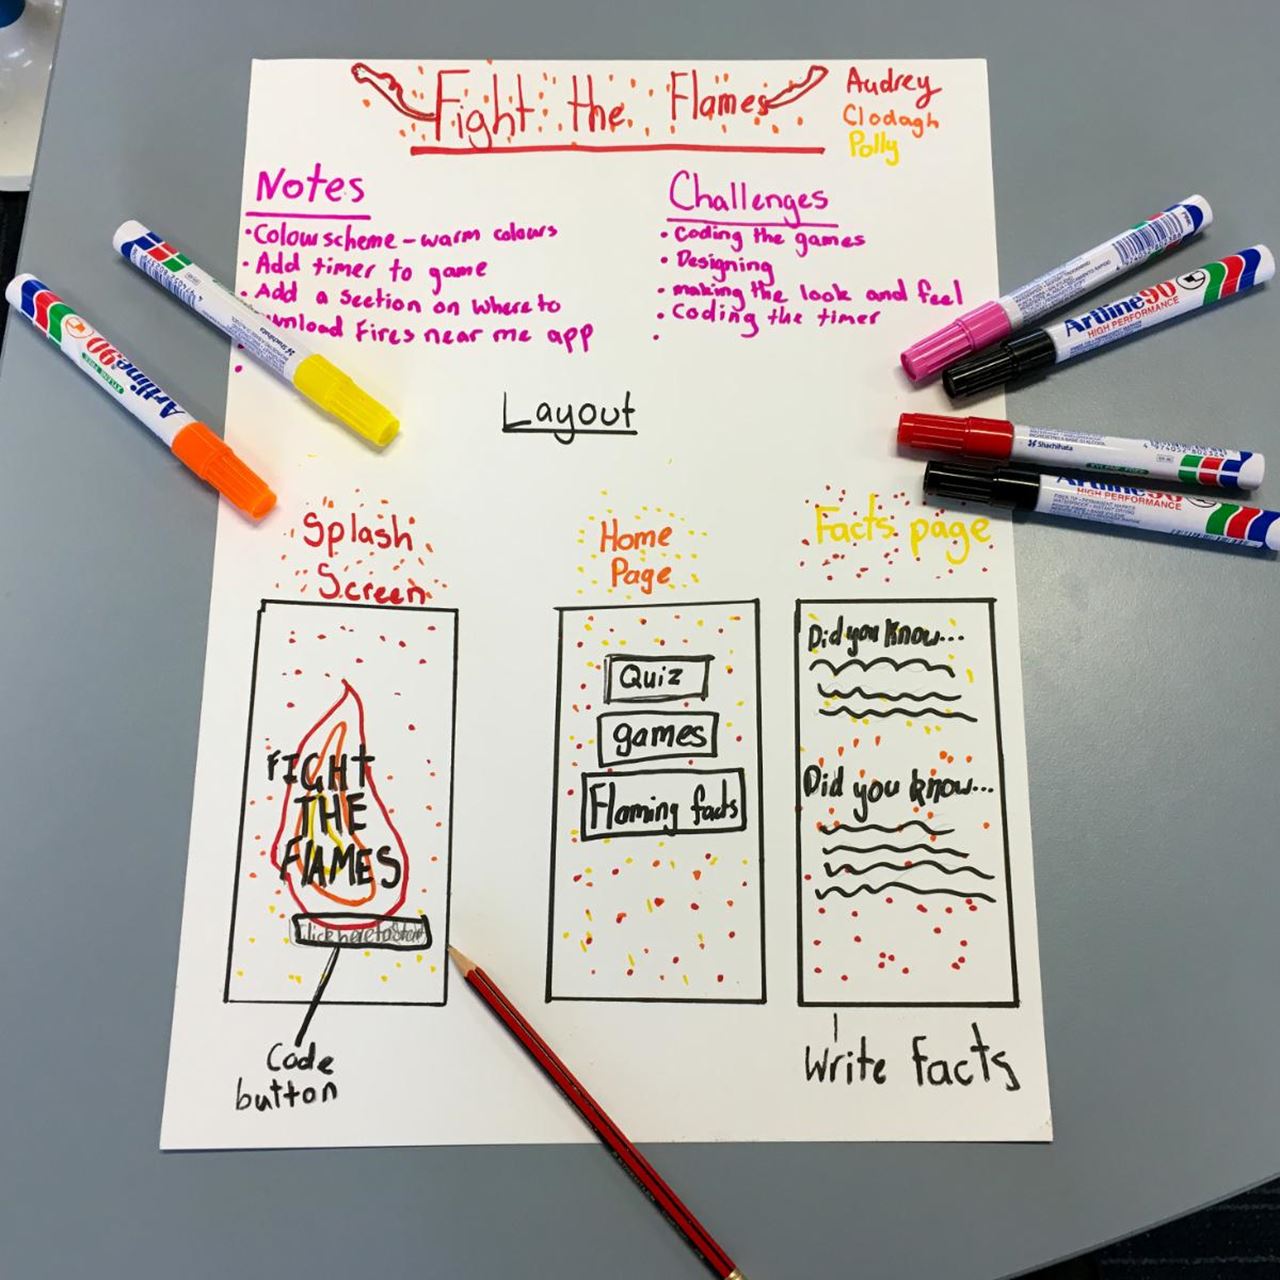 Fight the Flames
Audrey
Clodagh
Polly
Notes
• Colour scheme - warm colours
• Add timer to game
• Add a section on where to
wnload Fires near me app
•
Challenges
• Coding the games
• Designing
• making the look and feel
• Coding the timer
•
Layout
Splash
Screen
FIGHT
THE
FLAMES
Click here to Start
Code
button
Home
Page
Quiz
games
Flaming facts
Facts page
Did you know...
Did you know...
Write Facts
Artline 90
Artline 90
HIGH PERFORMANCE
Shachihata
4 974052 802324
Artline 90
HIGH PERFORMANCE